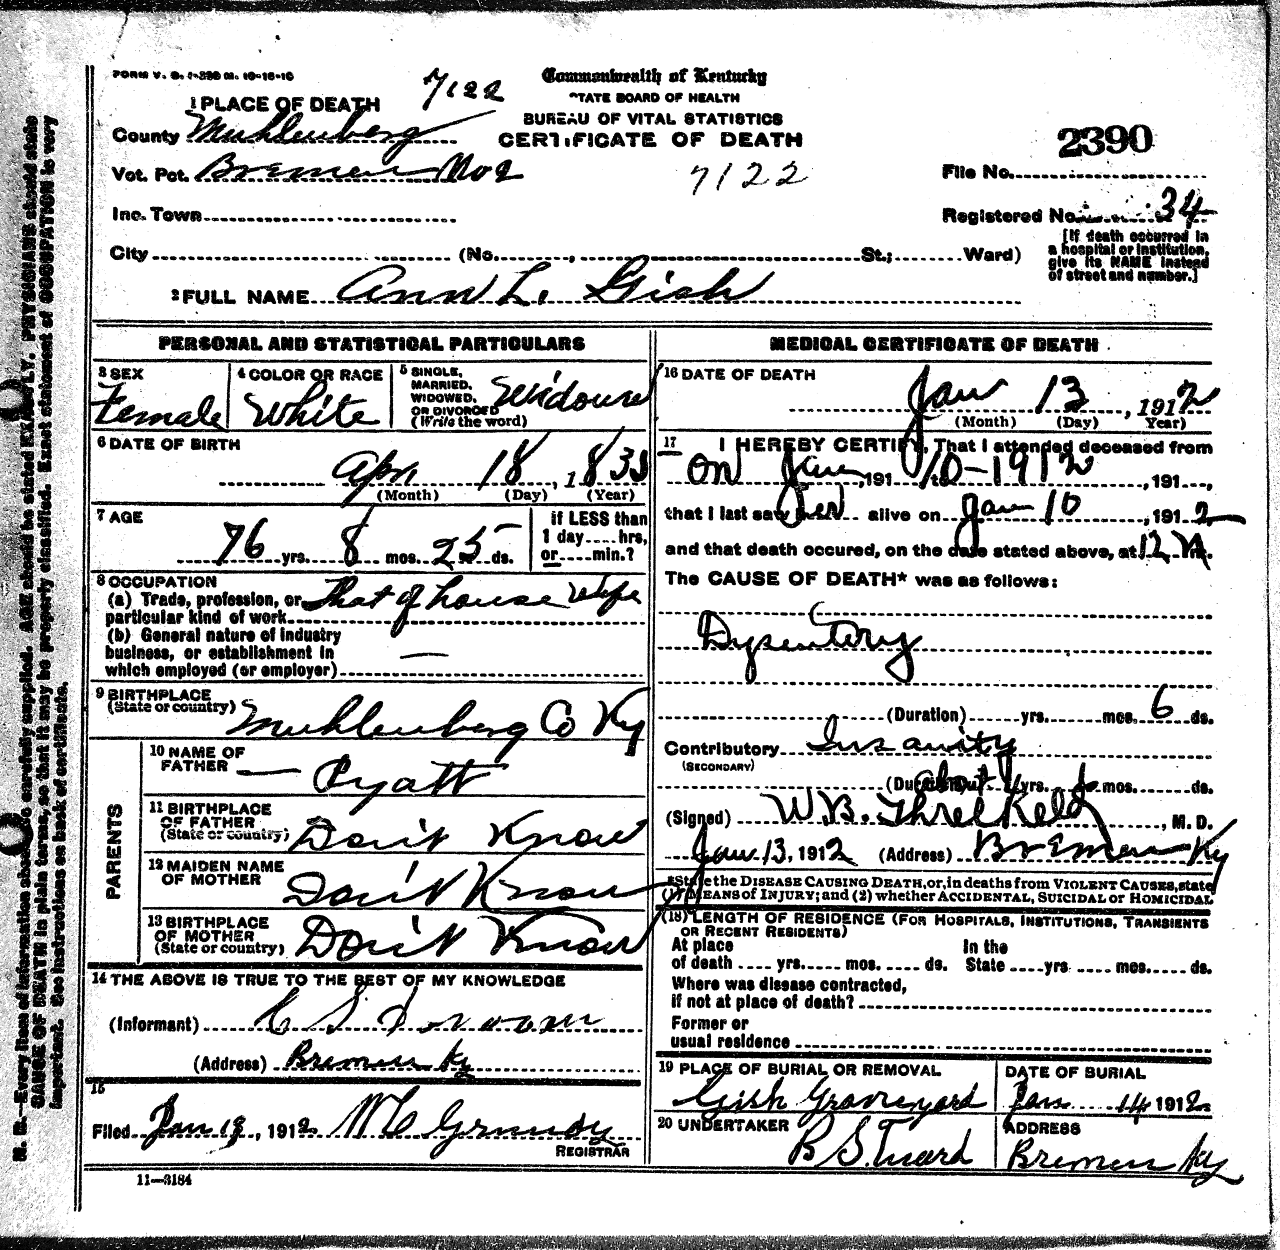 FORM V. S. 1-200 M. 10-16-10
7122
Commonwealth of Kentucky
STATE BOARD OF HEALTH
BUREAU OF VITAL STATISTICS
CERTIFICATE OF DEATH
1 PLACE OF DEATH
County Muhlenberg
Vot. Pct. Bremen No 2
7122
2390
File No.
Inc. Town
Registered No. 34
City (No. , St.; Ward)
[If death occurred in a hospital or institution, give its NAME instead of street and number.]
2 FULL NAME Ann L. Gish
PERSONAL AND STATISTICAL PARTICULARS
3 SEX Female
4 COLOR OR RACE White
5 SINGLE, MARRIED, WIDOWED, OR DIVORCED (Write the word) Widowed
6 DATE OF BIRTH
Apr. 18, 183
(Month) (Day) (Year)
7 AGE
76 yrs. 8 mos. 25 ds.
if LESS than 1 day....hrs, or....min.?
8 OCCUPATION
(a) Trade, profession, or particular kind of work That of house wife
(b) General nature of industry business, or establishment in which employed (or employer) —
9 BIRTHPLACE (State or country) Muhlenberg Co Ky
PARENTS
10 NAME OF FATHER — Pyatt
11 BIRTHPLACE OF FATHER (State or country) Don't Know
12 MAIDEN NAME OF MOTHER Don't Know
13 BIRTHPLACE OF MOTHER (State or country) Don't Know
14 THE ABOVE IS TRUE TO THE BEST OF MY KNOWLEDGE
(Informant) C S
(Address) Bremen Ky
15
Filed Jan 13, 1912 M C Grundy
REGISTRAR
11—3184
MEDICAL CERTIFICATE OF DEATH
16 DATE OF DEATH
Jan 13, 1912
(Month) (Day) (Year)
17 I HEREBY CERTIFY, That I attended deceased from
on Jan, 191 to 10-1912, 191
that I last saw her alive on Jan 10, 1912
and that death occured, on the date stated above, at 12 m.
The CAUSE OF DEATH* was as follows:
Dysentory
(Duration) yrs. mos. 6 ds.
Contributory Insanity
(SECONDARY)
(Duration) about yrs. mos. ds.
(Signed) W. B. Threlkeld, M. D.
Jan 13, 1912 (Address) Bremen Ky
*State the DISEASE CAUSING DEATH, or, in deaths from VIOLENT CAUSES, state
(1) MEANS OF INJURY; and (2) whether ACCIDENTAL, SUICIDAL or HOMICIDAL
(18) LENGTH OF RESIDENCE (FOR HOSPITALS, INSTITUTIONS, TRANSIENTS
OR RECENT RESIDENTS)
At place of death .... yrs. .... mos. .... ds. In the State .... yrs .... mos. .... ds.
Where was disease contracted,
if not at place of death?
Former or
usual residence
19 PLACE OF BURIAL OR REMOVAL
Gish Graveyard
DATE OF BURIAL
Jan 14 1912
20 UNDERTAKER
B S Tuard
ADDRESS
Bremen Ky
N. B.—Every item of information should be carefully supplied. AGE should be stated EXACTLY. PHYSICIANS should state
CAUSE OF DEATH in plain terms, so that it may be properly classified. Exact statement of OCCUPATION is very
important. See instructions on back of certificate.